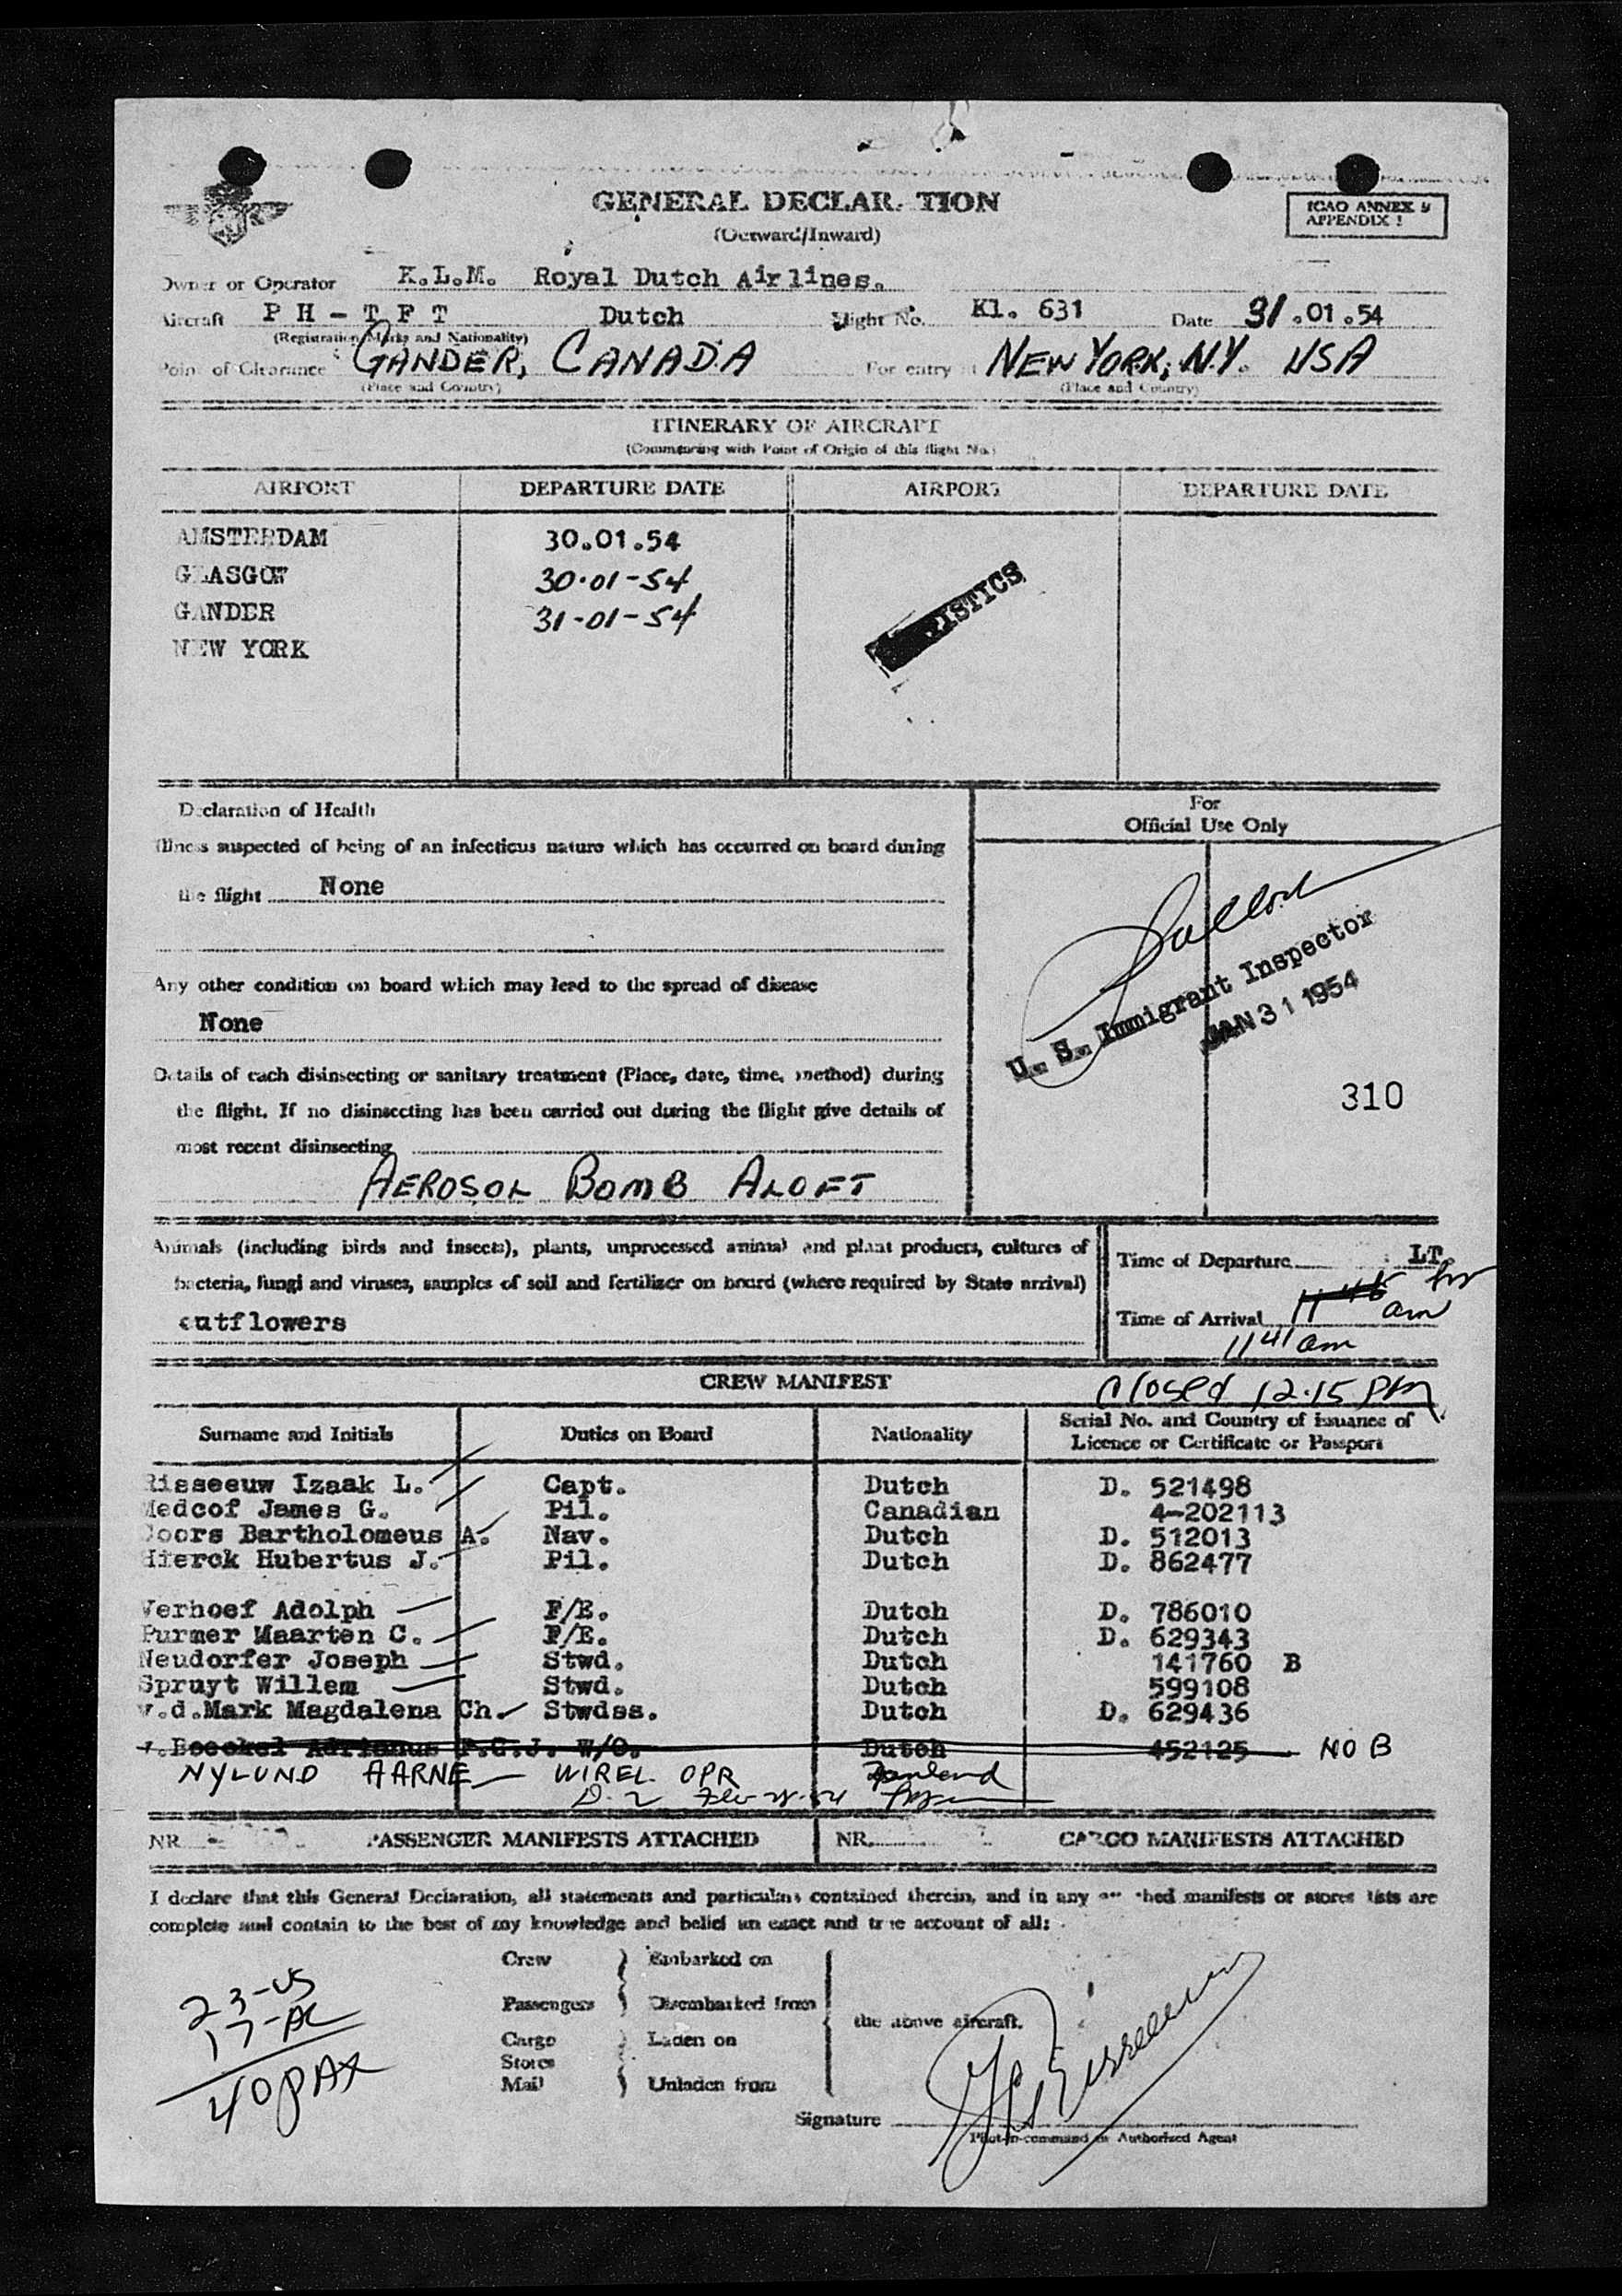 GENERAL DECLAR. TION
(Outward/Inward)
ICAO ANNEX 9
APPENDIX 1
Owner or Operator K.L.M. Royal Dutch Airlines.
Aircraft P H - T F T Dutch Flight No. Kl. 631 Date 31.01.54
(Registration Marks and Nationality)
Point of Clearance GANDER, CANADA For entry at NEW YORK, N.Y. USA
(Place and Country) (Place and Country)
ITINERARY OF AIRCRAFT
(Commencing with Point of Origin of this flight No.)
AIRPORT DEPARTURE DATE AIRPORT DEPARTURE DATE
AMSTERDAM 30.01.54
GLASGOW 30-01-54
GANDER 31-01-54
NEW YORK
ISTICS
Declaration of Health
Illness suspected of being of an infectious nature which has occurred on board during
the flight None
Any other condition on board which may lead to the spread of disease
None
Details of each disinsecting or sanitary treatment (Place, date, time, method) during
the flight. If no disinsecting has been carried out during the flight give details of
most recent disinsecting
AEROSOL BOMB ALOFT
For
Official Use Only
U. S. Immigrant Inspector
JAN 31 1954
310
Animals (including birds and insects), plants, unprocessed animal and plant products, cultures of
bacteria, fungi and viruses, samples of soil and fertilizer on board (where required by State arrival)
cutflowers
Time of Departure LT.
Time of Arrival 11 46 am
11 41 am
CREW MANIFEST
Closed 12.15 PM
Surname and Initials Duties on Board Nationality Serial No. and Country of Issuance of
Licence or Certificate or Passport
Risseeuw Izaak L. Capt. Dutch D. 521498
Medcof James G. Pil. Canadian 4-202113
Doors Bartholomeus A. Nav. Dutch D. 512013
Hierck Hubertus J. Pil. Dutch D. 862477
Verhoef Adolph F/E. Dutch D. 786010
Purmer Maarten C. F/E. Dutch D. 629343
Neudorfer Joseph Stwd. Dutch 141760 B
Spruyt Willem Stwd. Dutch 599108
v.d.Mark Magdalena Ch. Stwdss. Dutch D. 629436
v.Boeckel Adrianus P.G.J. W/O. Dutch 452125 NO B
NYLUND AARNE WIREL. OPR
NR PASSENGER MANIFESTS ATTACHED NR. CARGO MANIFESTS ATTACHED
I declare that this General Declaration, all statements and particulars contained therein, and in any attached manifests or stores lists are
complete and contain to the best of my knowledge and belief an exact and true account of all:
Crew Embarked on
Passengers Disembarked from
the above aircraft.
Cargo Laden on
Stores
Mail Unladen from
23-US
17-AL
40 PAX
Signature
Pilot-in-command or Authorized Agent